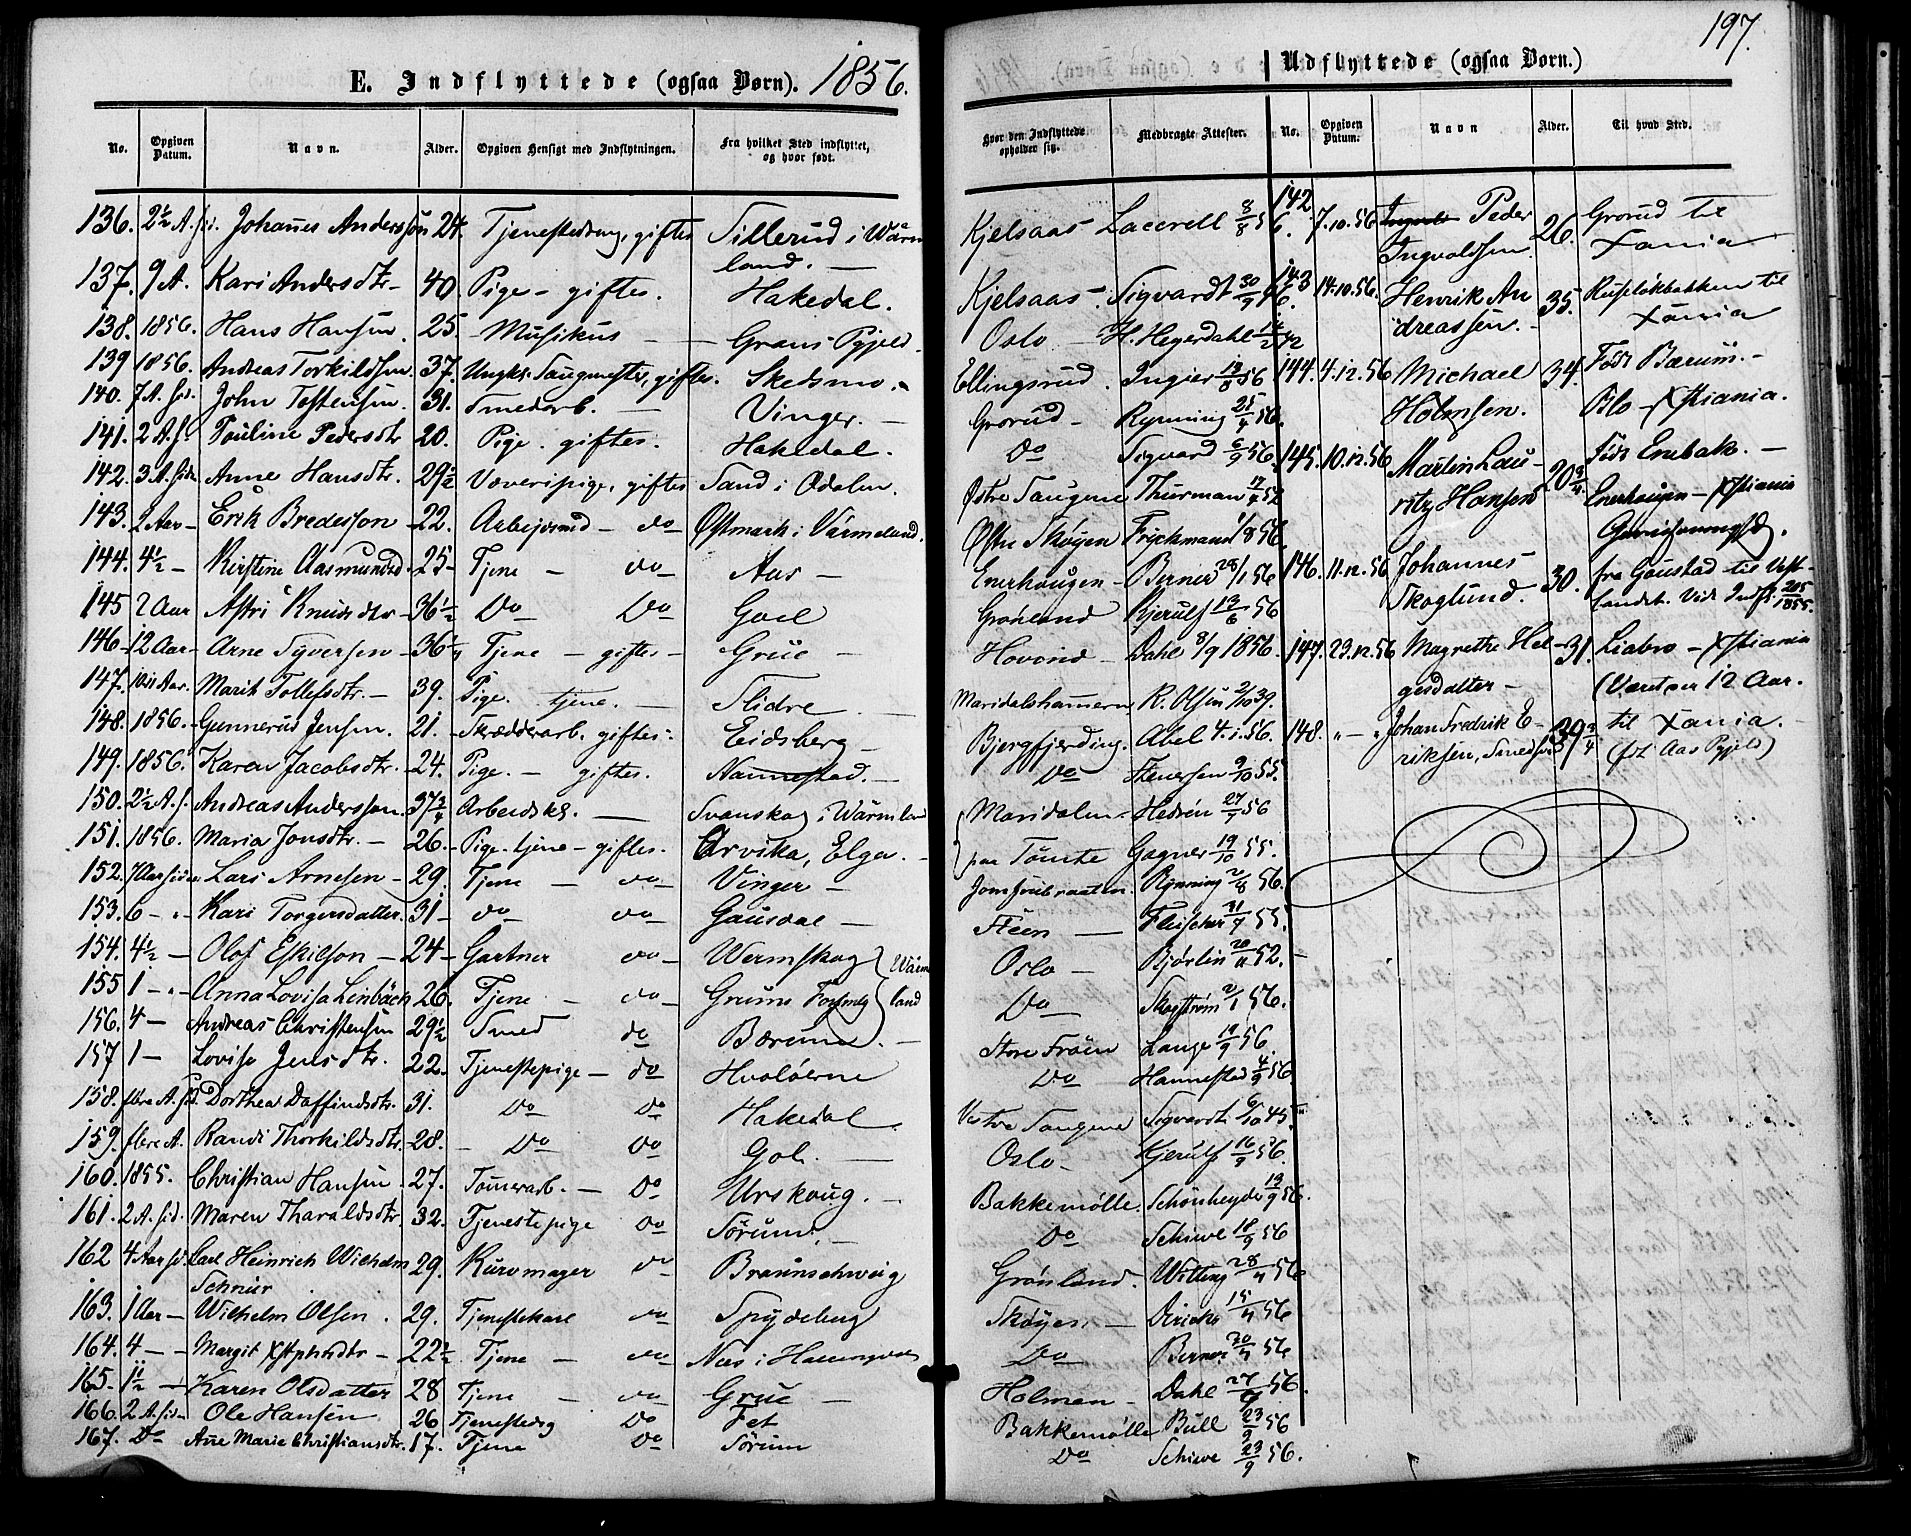 197.
E. Indflyttede (ogsaa Børn). 1856.
No. Opgiven Datum. Navn. Alder. Opgiven Hensigt med Indflytningen. Fra hvilket Sted indflyttet, og hvor født.
136. 2½ A. sid. Johanes Andersson 24. Tjenestedreng, giftes Sillerud i Wärm
land. —
137. 9 A. Kari Andersdtr — 40 Pige — giftes. Hakedal.
138. 1856. Hans Hansen. 25. — Musikus — Grans Pgjeld.
139 1856. Andreas Torkildsen 37. Ungk. Saugmester, giftes. Skedsmo.
140. 7 A. sid. John Tostensen. 31. Smedarb. — Vinger. —
141. 2 A. s. Pouline Pedersdtr 20. Pige. giftes. Hakedal.
142. 3 A. siden Anne Hansdtr 29½ Væveripige, giftes Sand i Odalen.
143. 2 Aar — Erik Bredesson — 22. Arbejdsmd — do Østmark i Värmeland.
144. 4½ — Kirstine Aasmundsd. 25 — Tjene — do — Aas —
145 2 Aar Astri Knudsdtr — 36½ Do Do Goel
146 — 12 Aar — Arne Syversen — 36¼ Tjene — giftes — Grue —
147. 10 à 11 Aar. Marit Tollefsdtr. — 39. Pige. tjene. — Slidre —
148. 1856. — Gunnerus Jensen. 21. — Skrædderarb. giftes. Eidsberg —
149. 1856. Karen Jacobsdtr. — 24. Pige. — giftes. Nannestad. —
150. 2½ A. s. Andreas Andersson. 37¾ Arbeidsk. — Svanskog i Wärmland
151. 1856. Maria Jonsdtr. — 26. — Pige. tjene — giftes. Arvika, Elga. —
152. 7 Aar siden Lars Arnesen — 29. Tjene — do — Vinger —
153. 6 — „ — Kari Torgersdatter. 31 — do do — Gausdal —
154. 4½ — Olof Eskilson — 24 — Gartner do — Wermskog Wärm
155 1 — „ — Anna Lovisa Linbäck 26. Tjene — do — Grums land
156. 4 — Andreas Christensen 29½ Smed do Bærum. —
157 1 — Lovise Jensdtr. 22. Tjenestepige — do Hvaløerne
158. flere A. sid. Dorthea Daffindsdtr. 31. Do Do Hakedal.
159. flere A. Randi Thorkildsdtr. 28. — Do Do Gol. —
160. 1855. Christian Hansen. 27. Tømerarb. — Do Urskoug. —
161. 2 A. sid. Maren Tharaldsdtr 32. Tjenestepige Do Sørum. —
162 4 Aar sid. Carl Heinrich Wilhelm 29. Kurvmager do Braunschweig
Schnür
163. 1 Aar — Wilhelm Olsen. 29. Tjenestekarl do — Spydeberg
164. 4 — — Margit — 22½ Tjene — do Næs i
165. 1½ — Karen Olsdatter 28 Tjene — do — Grue —
166. 2 A. sid Ole Hansen 26 Tjenestedrg Do Fet
167. Do Ane Marie Christiansdtr. 17. Tjene Do Sørum
Hvor den Indflyttede opholder sig. Medbragte Attester.
Kjelsaas Lacerell 8/8 56
Kjelsaas — Sigvardt 30/9 56.
Oslo — H. Hegerdahl 42
Ellingsrud. Ingier 56
Grorud — Rynning 25/4 56.
Do Sigvard 6/9 56.
Østre Saugene Thurman 52
Østre Skøyen Fryckmand 1/8 56.
Enerhaugen — Berner 28/1 56
Grønland Kjerulf 13/6 56
Hovind — Dahl 8/9 1856.
Maridalshameren R. Olsen 2/10 39.
Bjergfjerding. Abel 4. 1. 56.
Do Stenersen 9/10 55.
Maridalen — Hedrén 56
paa Tömte Gagner 19/10 55.
Jomfrubraaten. Rynning 2/8 56.
Steen — Fleischer 55.
Oslo — Björlin 20/11 52.
Do Skogström 2/1 56.
Store Fröen Lange 19/9 56.
Do Hannestad 4/9 56.
Vestre Saugene Sigvardt 6/10 45.
Oslo — Kjerulf 16/9 56.
Bakkemølle. Schønheyder 13/9 56.
Do Schiwe 18/9 56
Grønland. Witting 56
Skøyen — Diricks 56
Do Berner 56
Holmen — Dahl 56.
Bakkemølle Bull 23/9 56
Do Schiwe 23/9 56.
Udflyttede (ogsaa Børn.)
No. Opgiven Datum. Navn Alder. Til hvad Sted.
142 7. 10. 56 Peder 26. Grorud til
Ingvoldsen. Xania
143 14. 10. 56. Henrik An 35. Ruseløkbakken til
dreassen. — Xania
144. 4. 12. 56 Michael 34. Født Bærum. —
Holmsen. Oslo — Xstiania.
145. 10. 12. 56 Martin Lau- 20¾ Født Enebak. —
ritz Hansen Enerhaugen — Xstiania
146. 11. 12. 56 Johannes 30. fra Gaustad til Vest-
Skoglund. landet. Vid Indfl. 205/1855.
147. 23. 12. 56 Magrethe Hel- 31. Liabro — Xstiania
gesdatter — (Været her 12 Aar.
148. „ — „ Johan Fredrik E- 39¾ til Xania. —
riksen, Smedsv (fdt Aas Pgjeld)